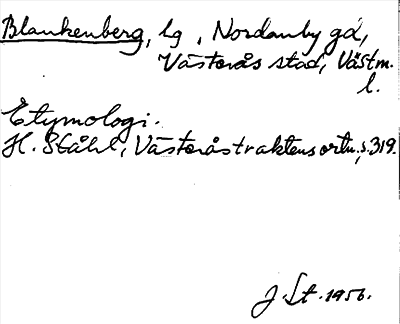 Blankenberg, lg, Nordanby gd,
Västerås stad, Västm.
l.
Etymologi.
H. Ståhl, Västeråstraktens ortn., s. 319.
J. St. 1956.